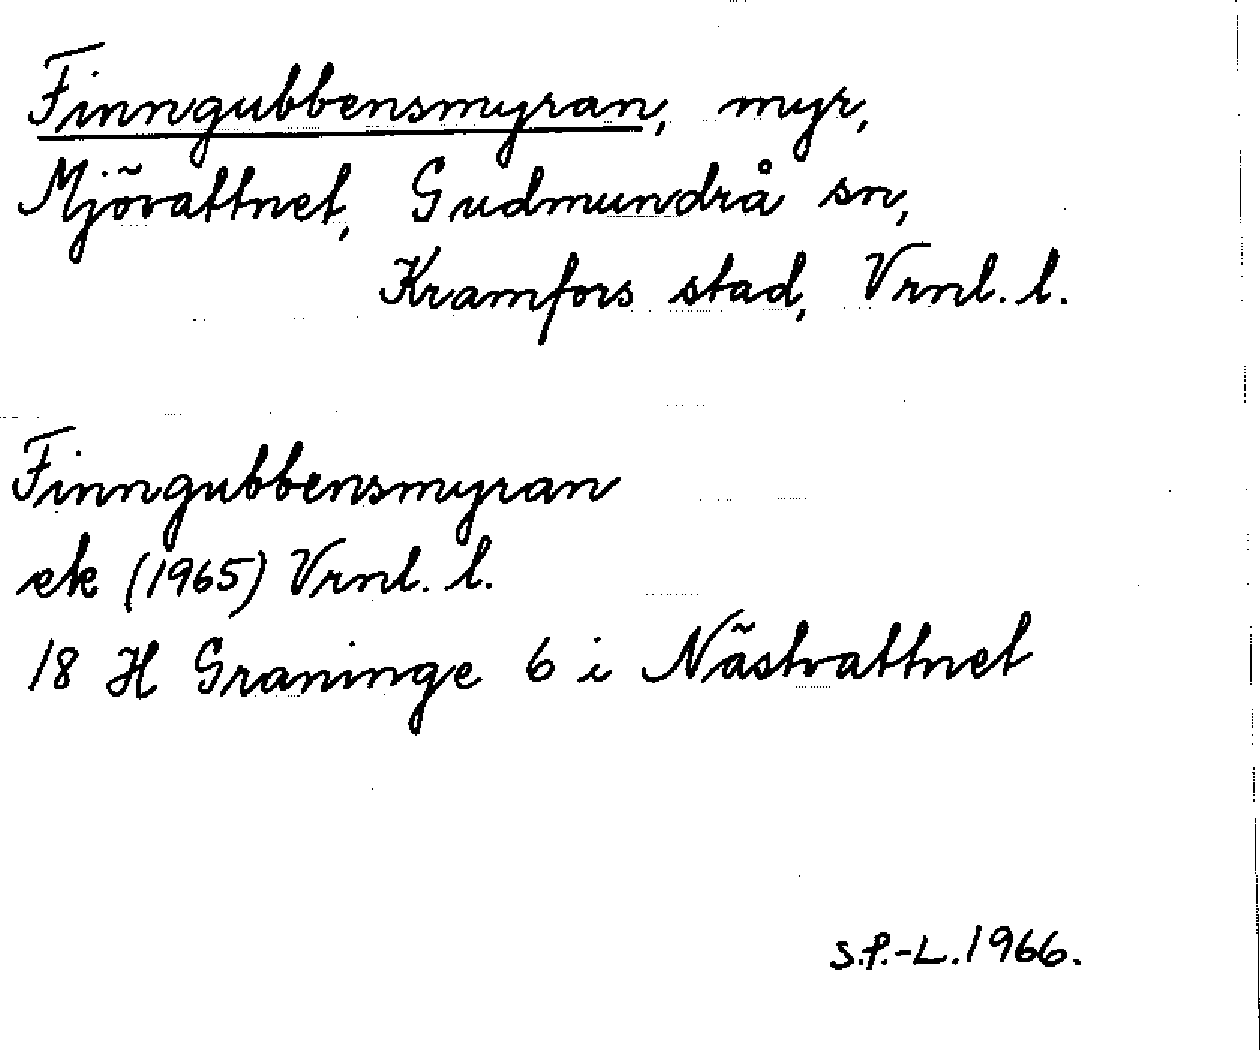 Finngubbensmyran, myr,
Mjövattnet, Gudmundrå sn,
Kramfors stad, Vrnl. l.
Finngubbensmyran
ek (1965) Vrnl. l.
18 H Graninge 6 i Nästvattnet
S.P.-L. 1966.